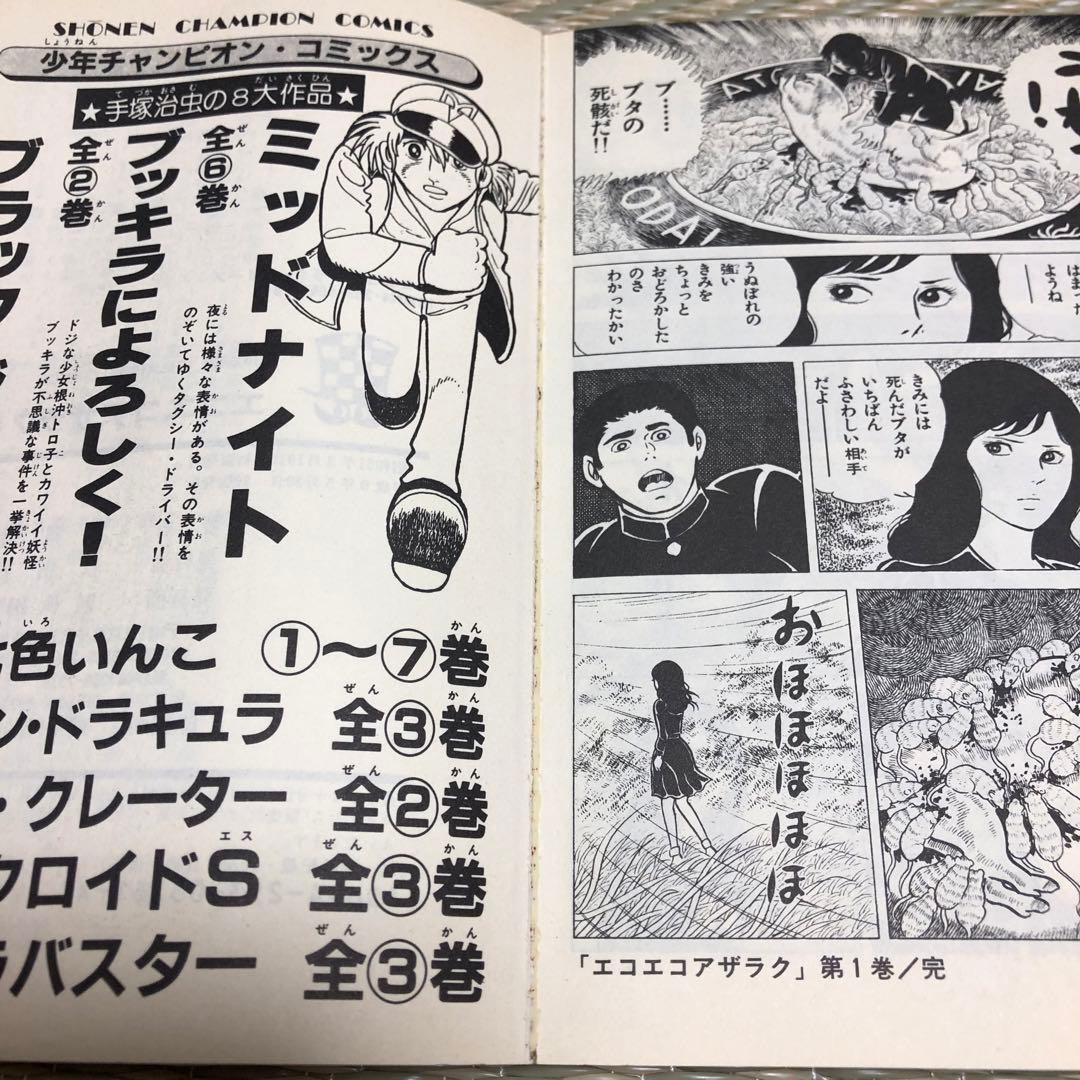 SHŌNEN CHAMPION COMICS
少年チャンピオン・コミックス
★手塚治虫の8大作品★
ミッドナイト
全⑥巻
夜には様々な表情がある。その表情を
のぞいてゆくタクシー・ドライバー!!
ブッキラによろしく!
全②巻
ドジな少女根沖トロ子とカワイイ妖怪
ブッキラが不思議な事件を一挙解決!!
ブラック
色いんこ ①〜⑦巻
ン・ドラキュラ 全③巻
・クレーター 全②巻
クロイドS 全③巻
ラバスター 全③巻
ブ……
ブタの
死骸だ!!
ODA!
はまった
ようね
うぬぼれの
強い
きみを
ちょっと
おどろかした
のさ
わかったかい
きみには
死んだブタが
いちばん
ふさわしい相手
だよ
おほほほほ
「エコエコアザラク」第1巻/完